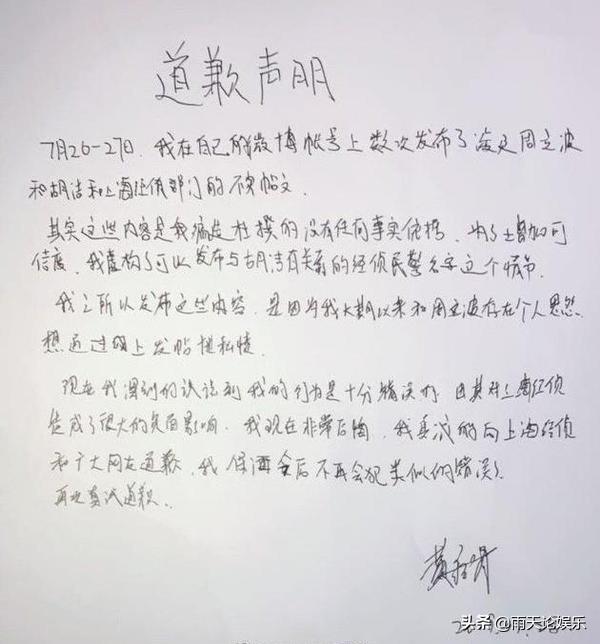 道歉声明
7月26-27日,我在自己的微博帐号上数次发布了诬蔑周立波
和胡洁和上海经侦部门的不实帖文.
其实这些内容是我编造杜撰的没有任何事实依据,为了增加可
信度,我虚构了可以发布与胡洁有关系的经侦民警名字这个情节.
我之所以发布这些内容,是因为我长期以来和周立波存在个人恩怨
想通过网上发帖泄私愤.
现在我深刻的认识到我的行为是十分错误的 尤其对上海经侦
造成了很大的负面影响.我现在非常后悔,我真诚的向上海经侦
和广大网友道歉,我保证今后不再会犯类似的错误
再次真诚道歉.
头条 @雨天论娱乐